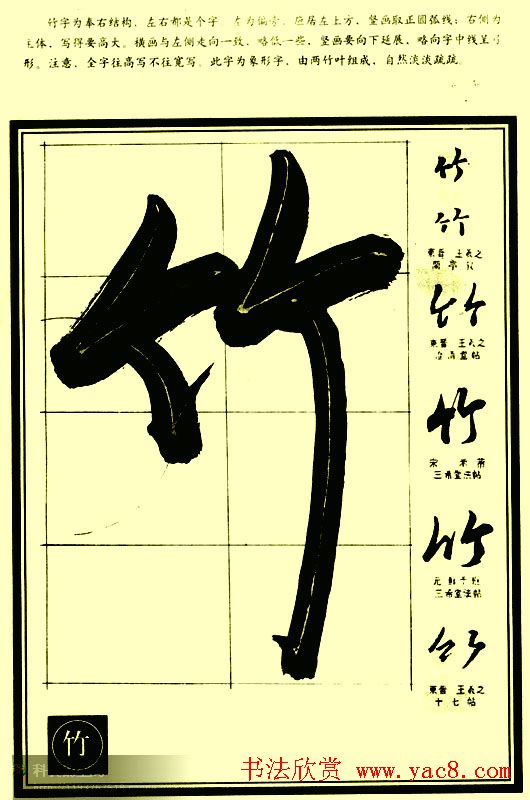 竹字为奉右结构，左右都是个字，左为偏旁，应居左上方，竖画取正圆弧线；右侧为
主体，写得要高大。横画与左侧走向一致，略低一些，竖画要向下延展，略向字中线呈弓
形。注意，全字往高写不往宽写。此字为象形字，由两竹叶组成，自然淡淡疏疏。
竹
竹
竹
東晉 王羲之
蘭亭
竹
東晉 王羲之
澄清堂帖
竹
宋 米芾
三希堂法帖
竹
元 鮮于樞
三希堂法帖
竹
東晉 王羲之
十七帖
竹
书法欣赏 www.yac8.com